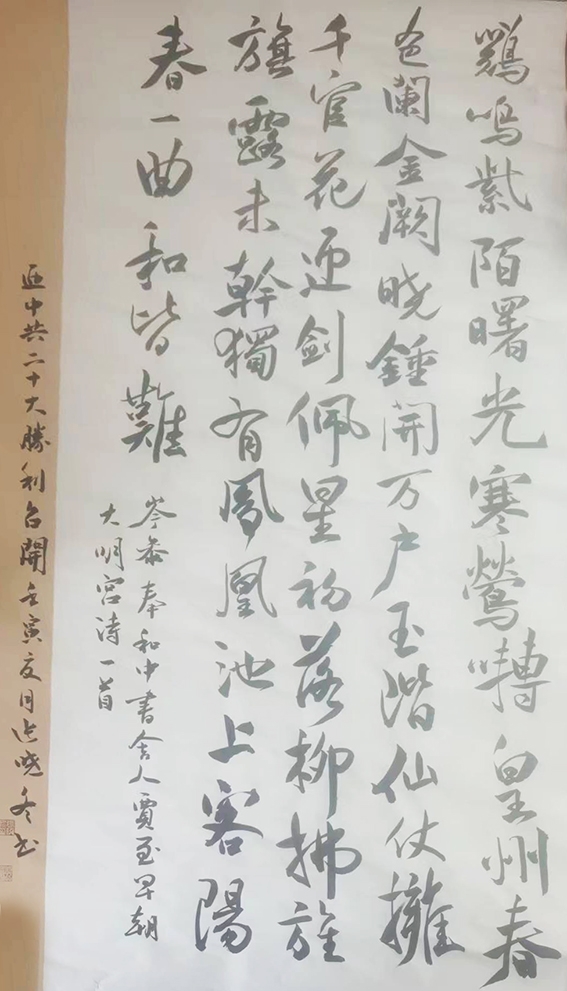 鷄鳴紫陌曙光寒鶯囀皇州春
色闌金闕晓鍾開万户玉階仙仗擁
千官花迎剑佩星初落柳拂旌
旗露未幹獨有鳳凰池上客陽
春一曲和皆難
岑參奉和中書舍人賈至早朝
大明宫诗一首
迎中共二十大勝利召開壬寅夏月晓冬书